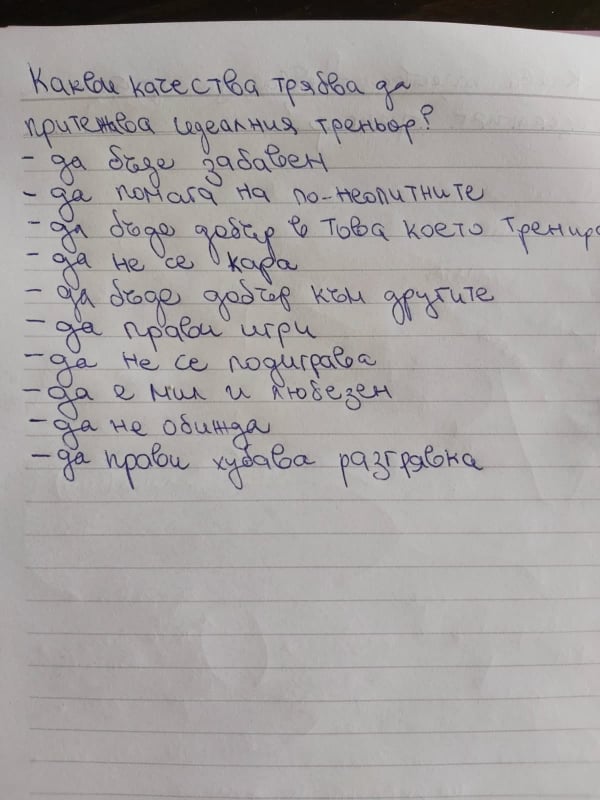 Какви качества трябва да
притежава идеалния треньор?
- да бъде забавен
- да помага на по-неопитните
- да бъде добър в това което тренира
- да не се кара
- да бъде добър към другите
- да прави игри
- да не се подиграва
- да е мил и любезен
- да не обижда
- да прави хубава разгрявка